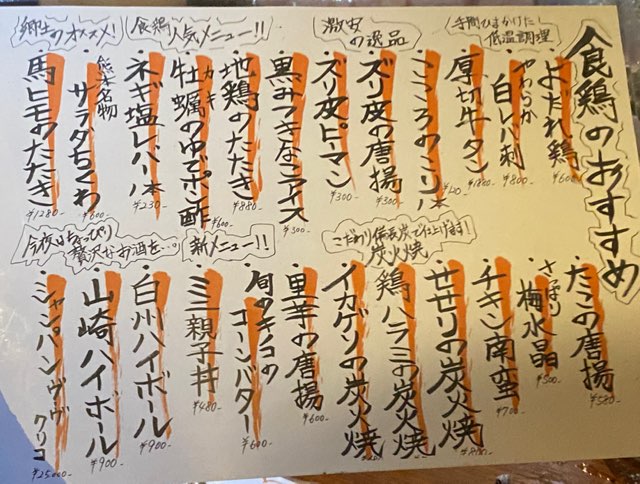 食鶏のおすすめ
手間ひまかけた
低温調理
・よだれ鶏
¥600-
・やわらか
白レバ刺
¥800-
・厚切牛タン
¥1880-
・こころのこり1本
激安の逸品
・ズリ皮の唐揚
¥300-
・ズリ皮ピーマン
¥300-
・黒みつきなこアイス
¥300-
食鶏人気メニュー!!
・地鶏のたたき
¥880-
カキ
・牡蠣のゆでポン酢
¥600-
・ネギ塩レバー1本
¥230-
郷土のオススメ!
熊本名物
・サラダちくわ
¥600-
・馬ヒモのたたき
¥1280-
・たこの唐揚
¥580-
さっぱり
・梅水晶
¥500-
・チキン南蛮
¥700-
こだわり備長炭で仕上げます!
炭火焼
・セセリの炭火焼
・鶏ハラミの炭火焼
・イカゲソの炭火焼
新メニュー!!
・里芋の唐揚
¥600-
・旬のキノコの
コーンバター
¥600-
・ミニ親子丼
¥480-
今夜はちょっぴり
贅沢なお酒を…♡
・白州ハイボール
¥900-
・山崎ハイボール
¥900-
・シャンパンヴーヴ
クリコ
¥25000-